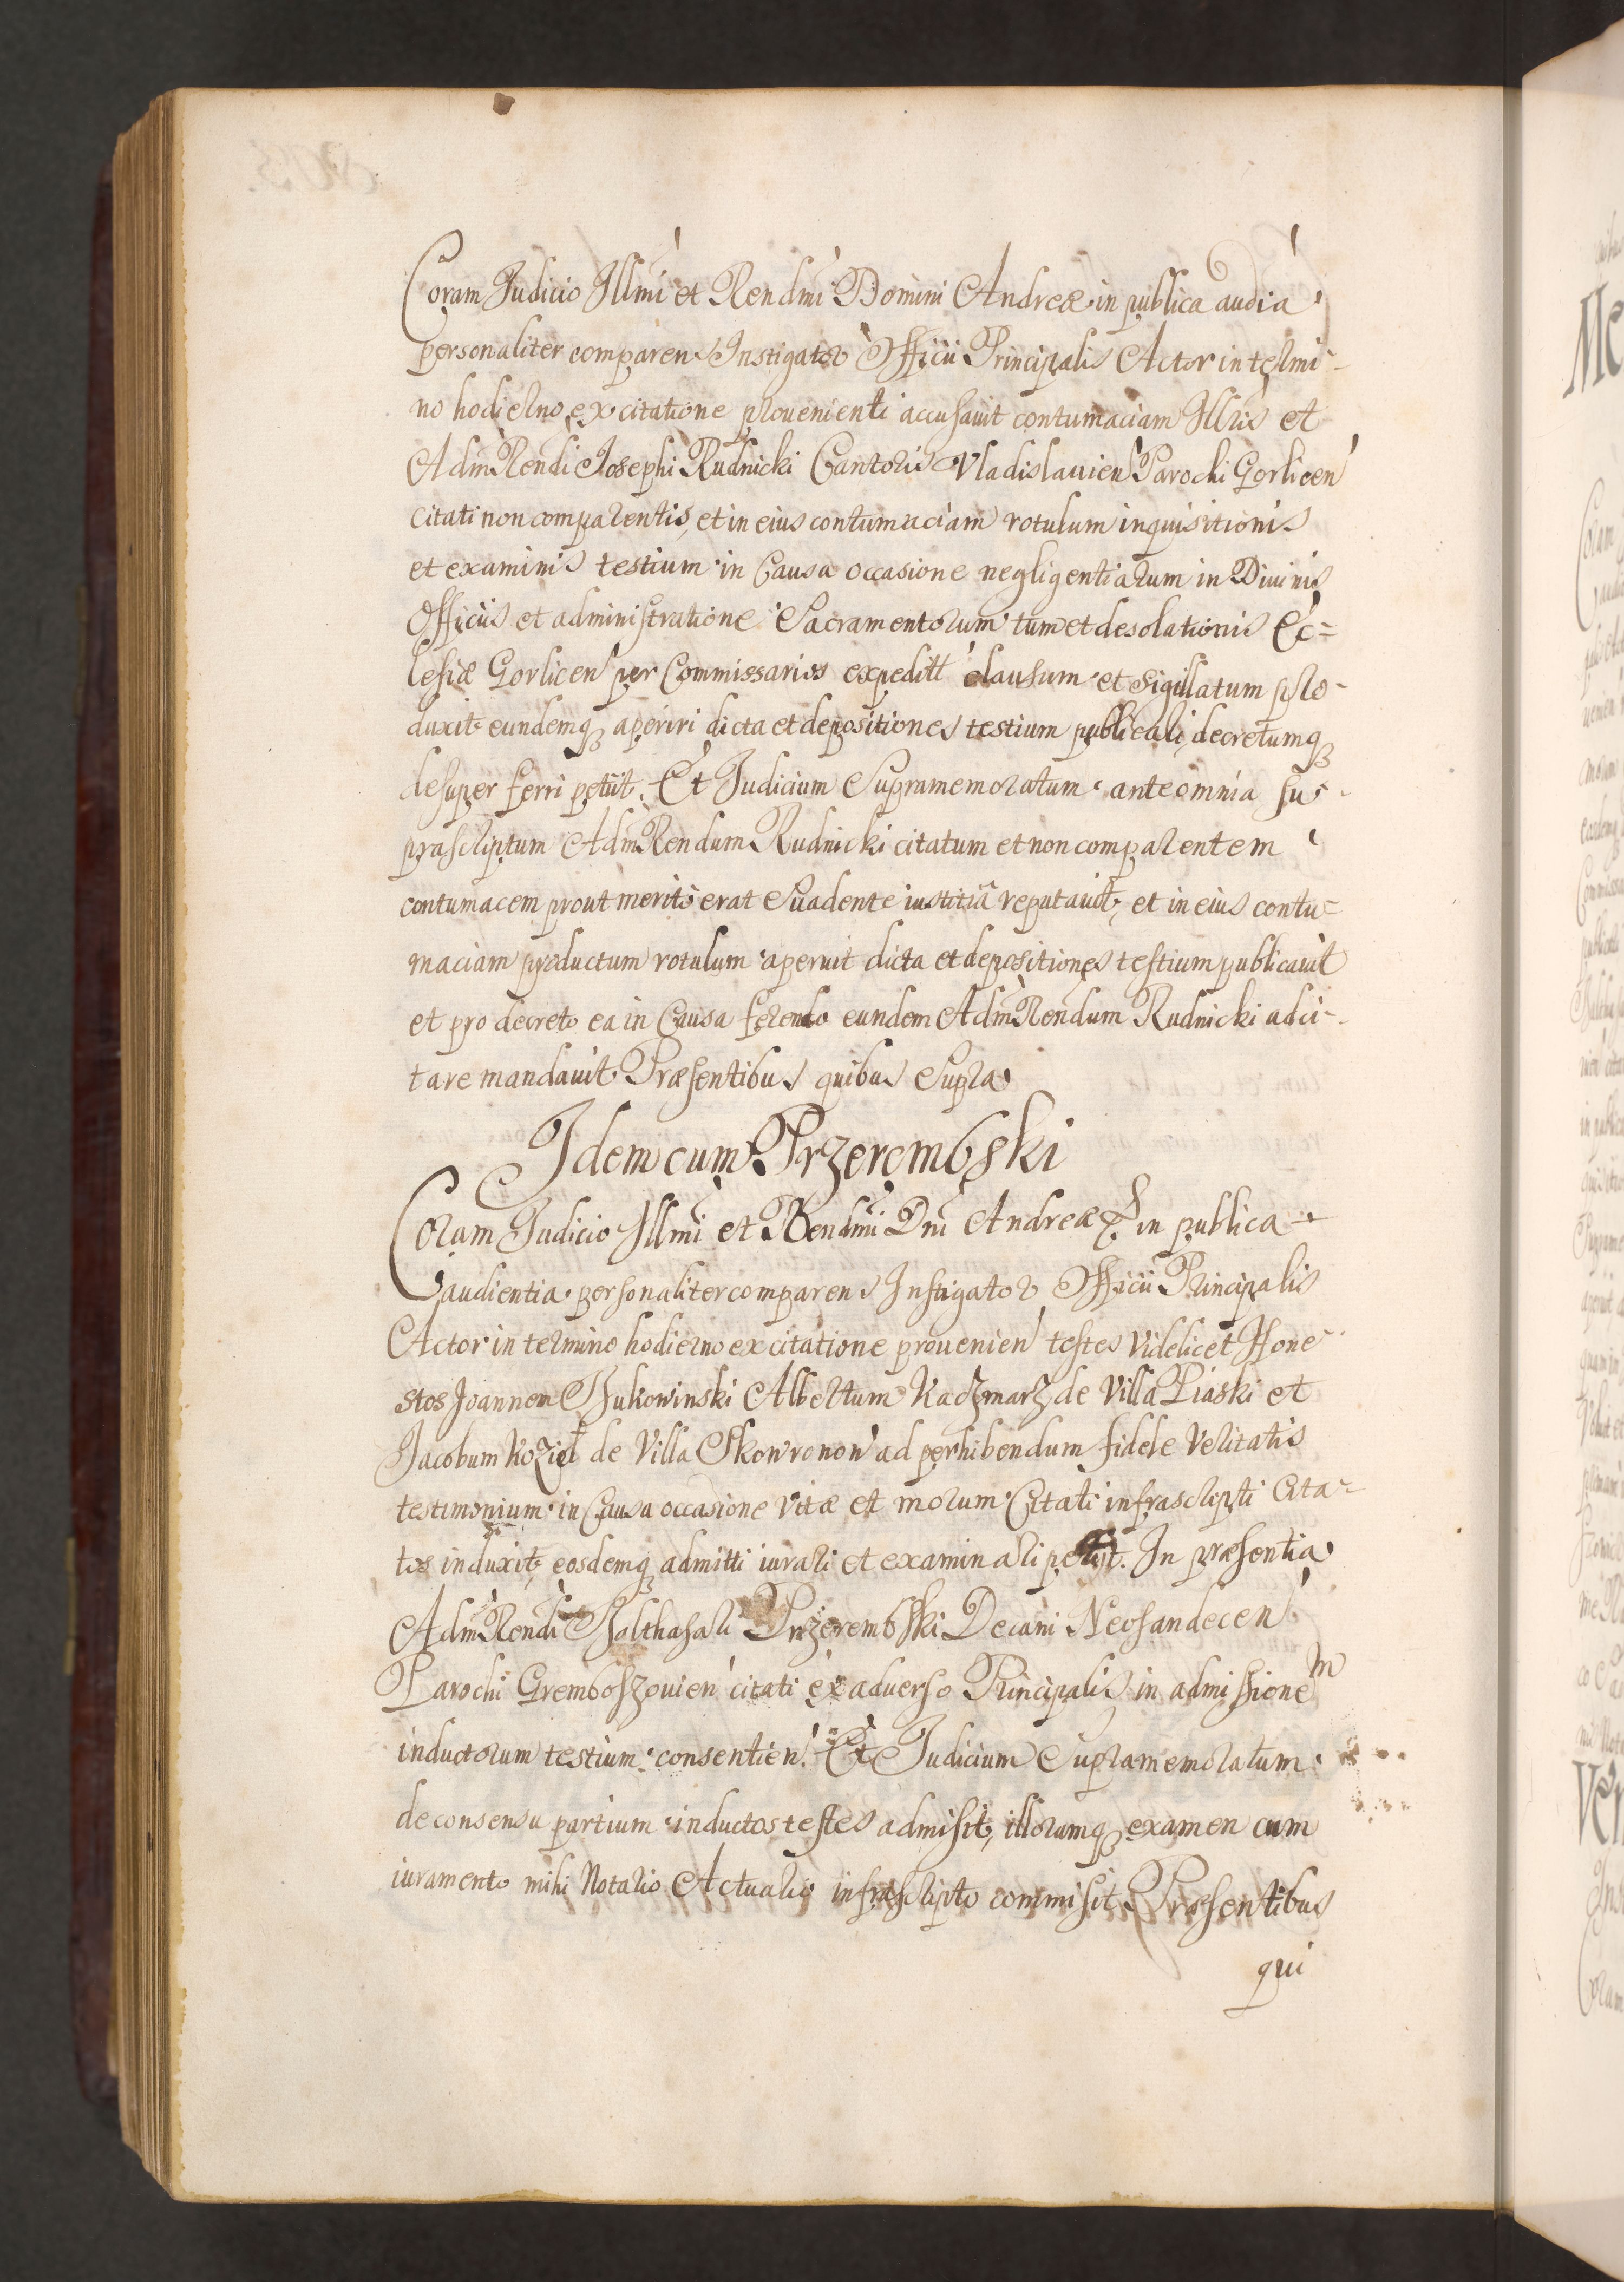 Coram Judicio Illmi et Rendmi Domini Andreæ in publica audia
personaliter comparens Instigator Officii Principalis Actor in termi-
no hodierno ex citatione provenienti accusavit contumaciam Illris et
AdmRendi Josephi Rudnicki Cantoris Vladislavien Parochi Gorlicen
citati non comparentis, et in eius contumaciam rotulum inquisitionis
et examinis testium in Causa occasione negligentiarum in Divinis
Officiis et administratione Sacramentorum tum et desolationis Ec=
lesiæ Gorlicen per Commissarios expeditt clausum et sigillatum pro-
duxit eundemq aperiri dicta et depositiones testium publicari, decretumq
desuper ferri petiit. Et Judicium Supramemoratum ante omnia su-
prascriptum AdmRendum Rudnicki citatum et non comparentem
contumacem prout merito erat Suadente iustitia reputavit, et in eius contu=
maciam productum rotulum aperuit dicta et depositiones testium publicavit
et pro decreto ea in Causa ferendo eundem AdmRendum Rudnicki adci-
tare mandavit Præsentibus quibus Supra
Idem cum Przerembski
Coram Judicio Illmi et Rendmi Dni Andreæ in publica
audientia personaliter comparens Instigator Officii Principalis
Actor in termino hodierno ex citatione provenien testes Videlicet Hone-
stos Joannem Bukowinski Albertum Kaczmarz de Villa Piaski et
Jacobum Kozieł de Villa Skowronow ad perhibendum fidele Veritatis
testimonium in Causa occasione vitæ et morum Citati infrascripti Cita=
tos induxit, eosdemq admitti iurari et examinari petiit. In præsentia
AdmRendi Balthasari Przerembski Decani Neosandecen
Parochi Gremboszovien citati ex adverso Principalis in admissionem
inductorum testium consentien. Et Judicium Supramemoratum
de consensu partium inductos testes admisit, illorumq examen cum
iuramento mihi Notario Actuario infrascripto commisit Præsentibus
qui